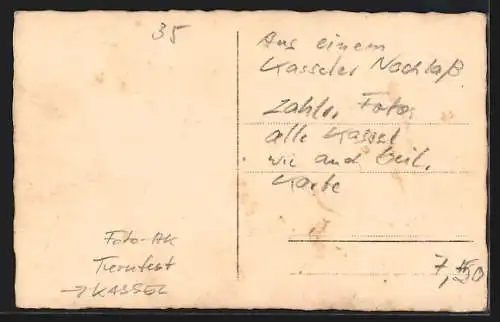 35
Aus einem
Kasseler Nachlaß
zahlr. Fotos
alle Kassel
wie auch beil.
Karte
Foto-AK
Turnfest
→ KASSEL
7,50